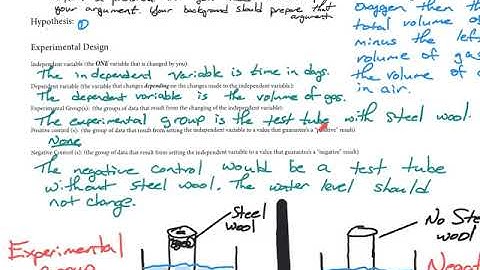 your argument. Your background should prepare that
argument.
Hypothesis: ①
Oxygen then the
total volume of
minus the left
volume of gas
the volume of
in air.
Experimental Design
Independent variable (the ONE variable that is changed by you)
The independent variable is time in days.
Dependent variable (the variable that changes depending on the changes made to the independent variable):
The dependent variable is the volume of gas.
Experimental Group(s): (the group of data that result from the changing of the independent variable):
The experimental group is the test tube with steel wool.
Positive control (s): (the group of data that result from setting the independent variable to a value that guarantee's a "positive" result)
None
Negative Control (s): (the group of data that result from setting the independent variable to a value that guarantee's a "negative" result)
The negative control would be a test tube
without steel wool. The water level should
not change.
Steel
wool
No Ste
wool
Experimental